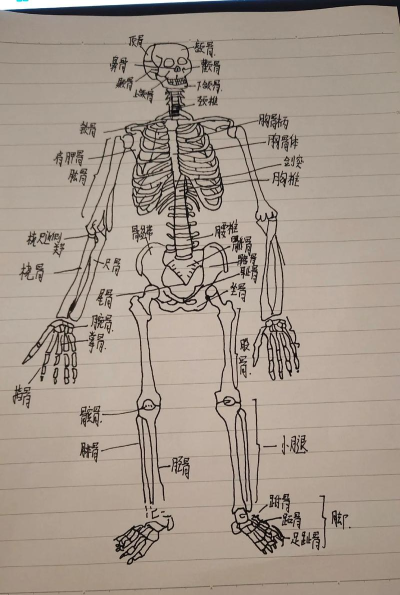 顶骨
额骨
鼻骨
颧骨
上颌骨
下颌骨
颈椎
锁骨
胸骨柄
肩胛骨
胸骨体
肱骨
剑突
胸椎
骨骶
腰椎
髂骨
桡尺近侧
关节
尺骨
桡骨
耻骨
尾骨
坐骨
腕骨
掌骨
股
骨
指骨
髌骨
腓骨
胫骨
小腿
跗骨
跖骨
足趾骨
脚